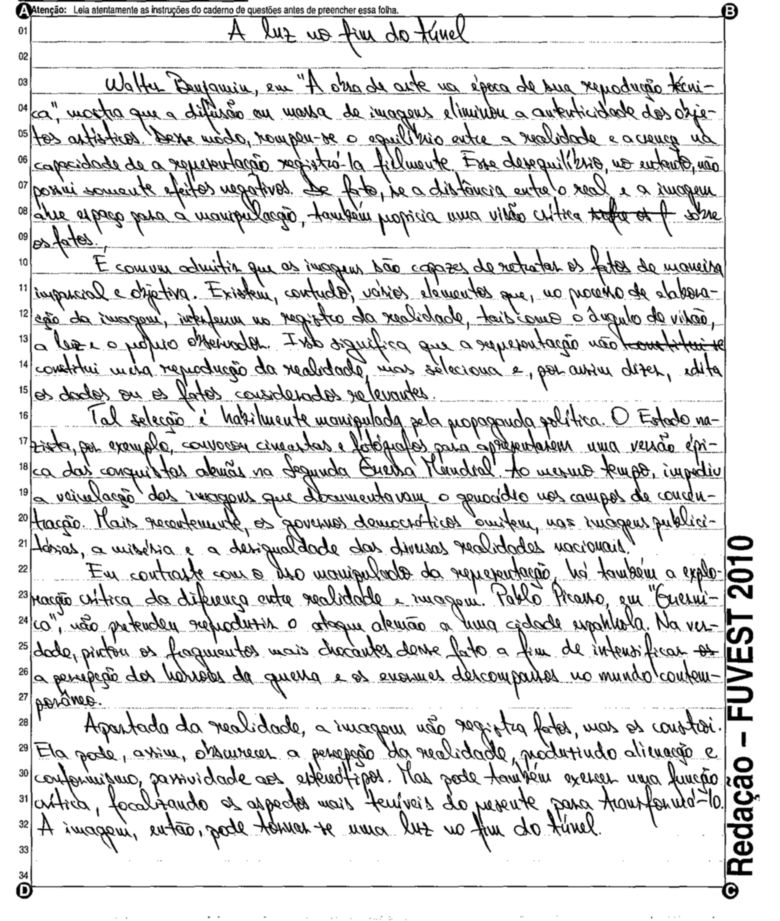 Atenção: Leia atentamente as instruções do caderno de questões antes de preencher essa folha.
A luz no fim do túnel
Walter Benjamin, em "A obra de arte na época de sua reprodução técni-
ca", mostra que a difusão em massa de imagens eliminou a autenticidade dos obje-
tos artísticos. Desse modo, rompeu-se o equilíbrio entre a realidade e a crença na
capacidade de a representação registrá-la fielmente. Esse desequilíbrio, no entanto, não
possui somente efeitos negativos. De fato, se a distância entre o real e a imagem
abre espaço para a manipulação, também propicia uma visão crítica sobre
os fatos.
É comum admitir que as imagens são capazes de retratar os fatos de maneira
imparcial e objetiva. Existem, contudo, vários elementos que, no processo de elabora-
ção da imagem, interferem no registro da realidade, tais como o ângulo de visão,
a luz e o próprio observador. Isso significa que a representação não constitui-se
constitui mera reprodução da realidade, mas seleciona e, por assim dizer, edita
os dados ou os fatos considerados relevantes.
Tal seleção é habilmente manipulada pela propaganda política. O Estado na-
zista, por exemplo, convocou cineastas e fotógrafos para apresentarem uma versão épi-
ca das conquistas alemãs na Segunda Guerra Mundial. Ao mesmo tempo, impediu
a veiculação das imagens que documentavam o genocídio nos campos de concen-
tração. Mais recentemente, os governos democráticos omitem, nas imagens publici-
tárias, a miséria e a desigualdade das diversas realidades nacionais.
Em contraste com o uso manipulado da representação, há também a explo-
ração crítica da diferença entre realidade e imagem. Pablo Picasso, em "Guerni-
ca", não pretendeu reproduzir o ataque alemão a uma cidade espanhola. Na ver-
dade, pintou os fragmentos mais chocantes desse fato a fim de intensificar os
a percepção dos horrores da guerra e os enormes descompassos no mundo contem-
porâneo.
Apartada da realidade, a imagem não registra fatos, mas os constrói.
Ela pode, assim, obscurecer a percepção da realidade, produzindo alienação e
conformismo, passividade aos estereótipos. Mas pode também exercer uma função
crítica, focalizando os aspectos mais temíveis do presente para transformá-lo.
A imagem, então, pode tornar-se uma luz no fim do túnel.
Redação – FUVEST 2010